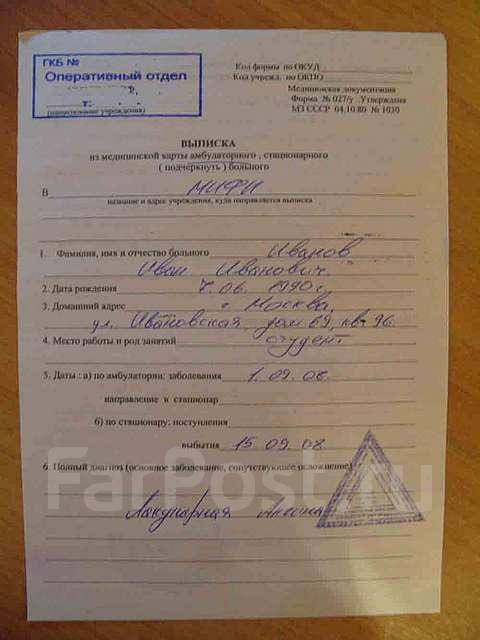 ГКБ №
Оперативный отдел
г.
(наименование учреждения)
Код формы по ОКУД
Код учрежд. по ОКПО
Медицинская документация
Форма № 027/у .Утверждена
МЗ СССР 04.10.80 № 1030
ВЫПИСКА
из медицинской карты амбулаторного , стационарного
( подчеркнуть ) больного
В МИФИ
название и адрес учреждения, куда направляется выписка
1. Фамилия, имя и отчество больного Иванов
Иван Иванович
2. Дата рождения 7.06. 1990 г.
3. Домашний адрес г. Москва,
ул. Ивановская, дом 69, кв. 96.
4. Место работы и род занятий студент
5. Даты : а) по амбулатории: заболевания 1.09.08.
направление к стационар
б) по стационару: поступления
выбытия 15.09.08
6. Полный диагноз (основное заболевание, сопутствующее осложнение)
FarPost.ru
Лакунарная Ангина